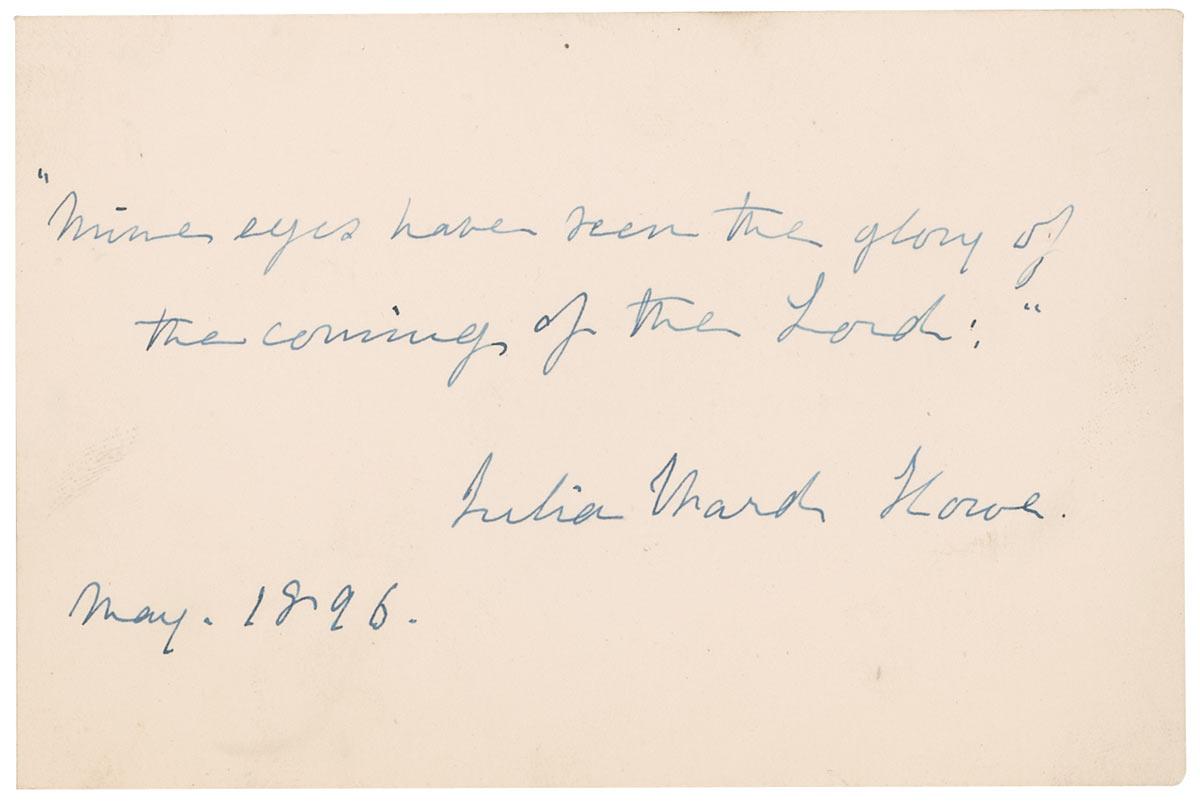 "Mine eyes have seen the glory of
the coming of the Lord:"
Julia Ward Howe.
May. 1896.